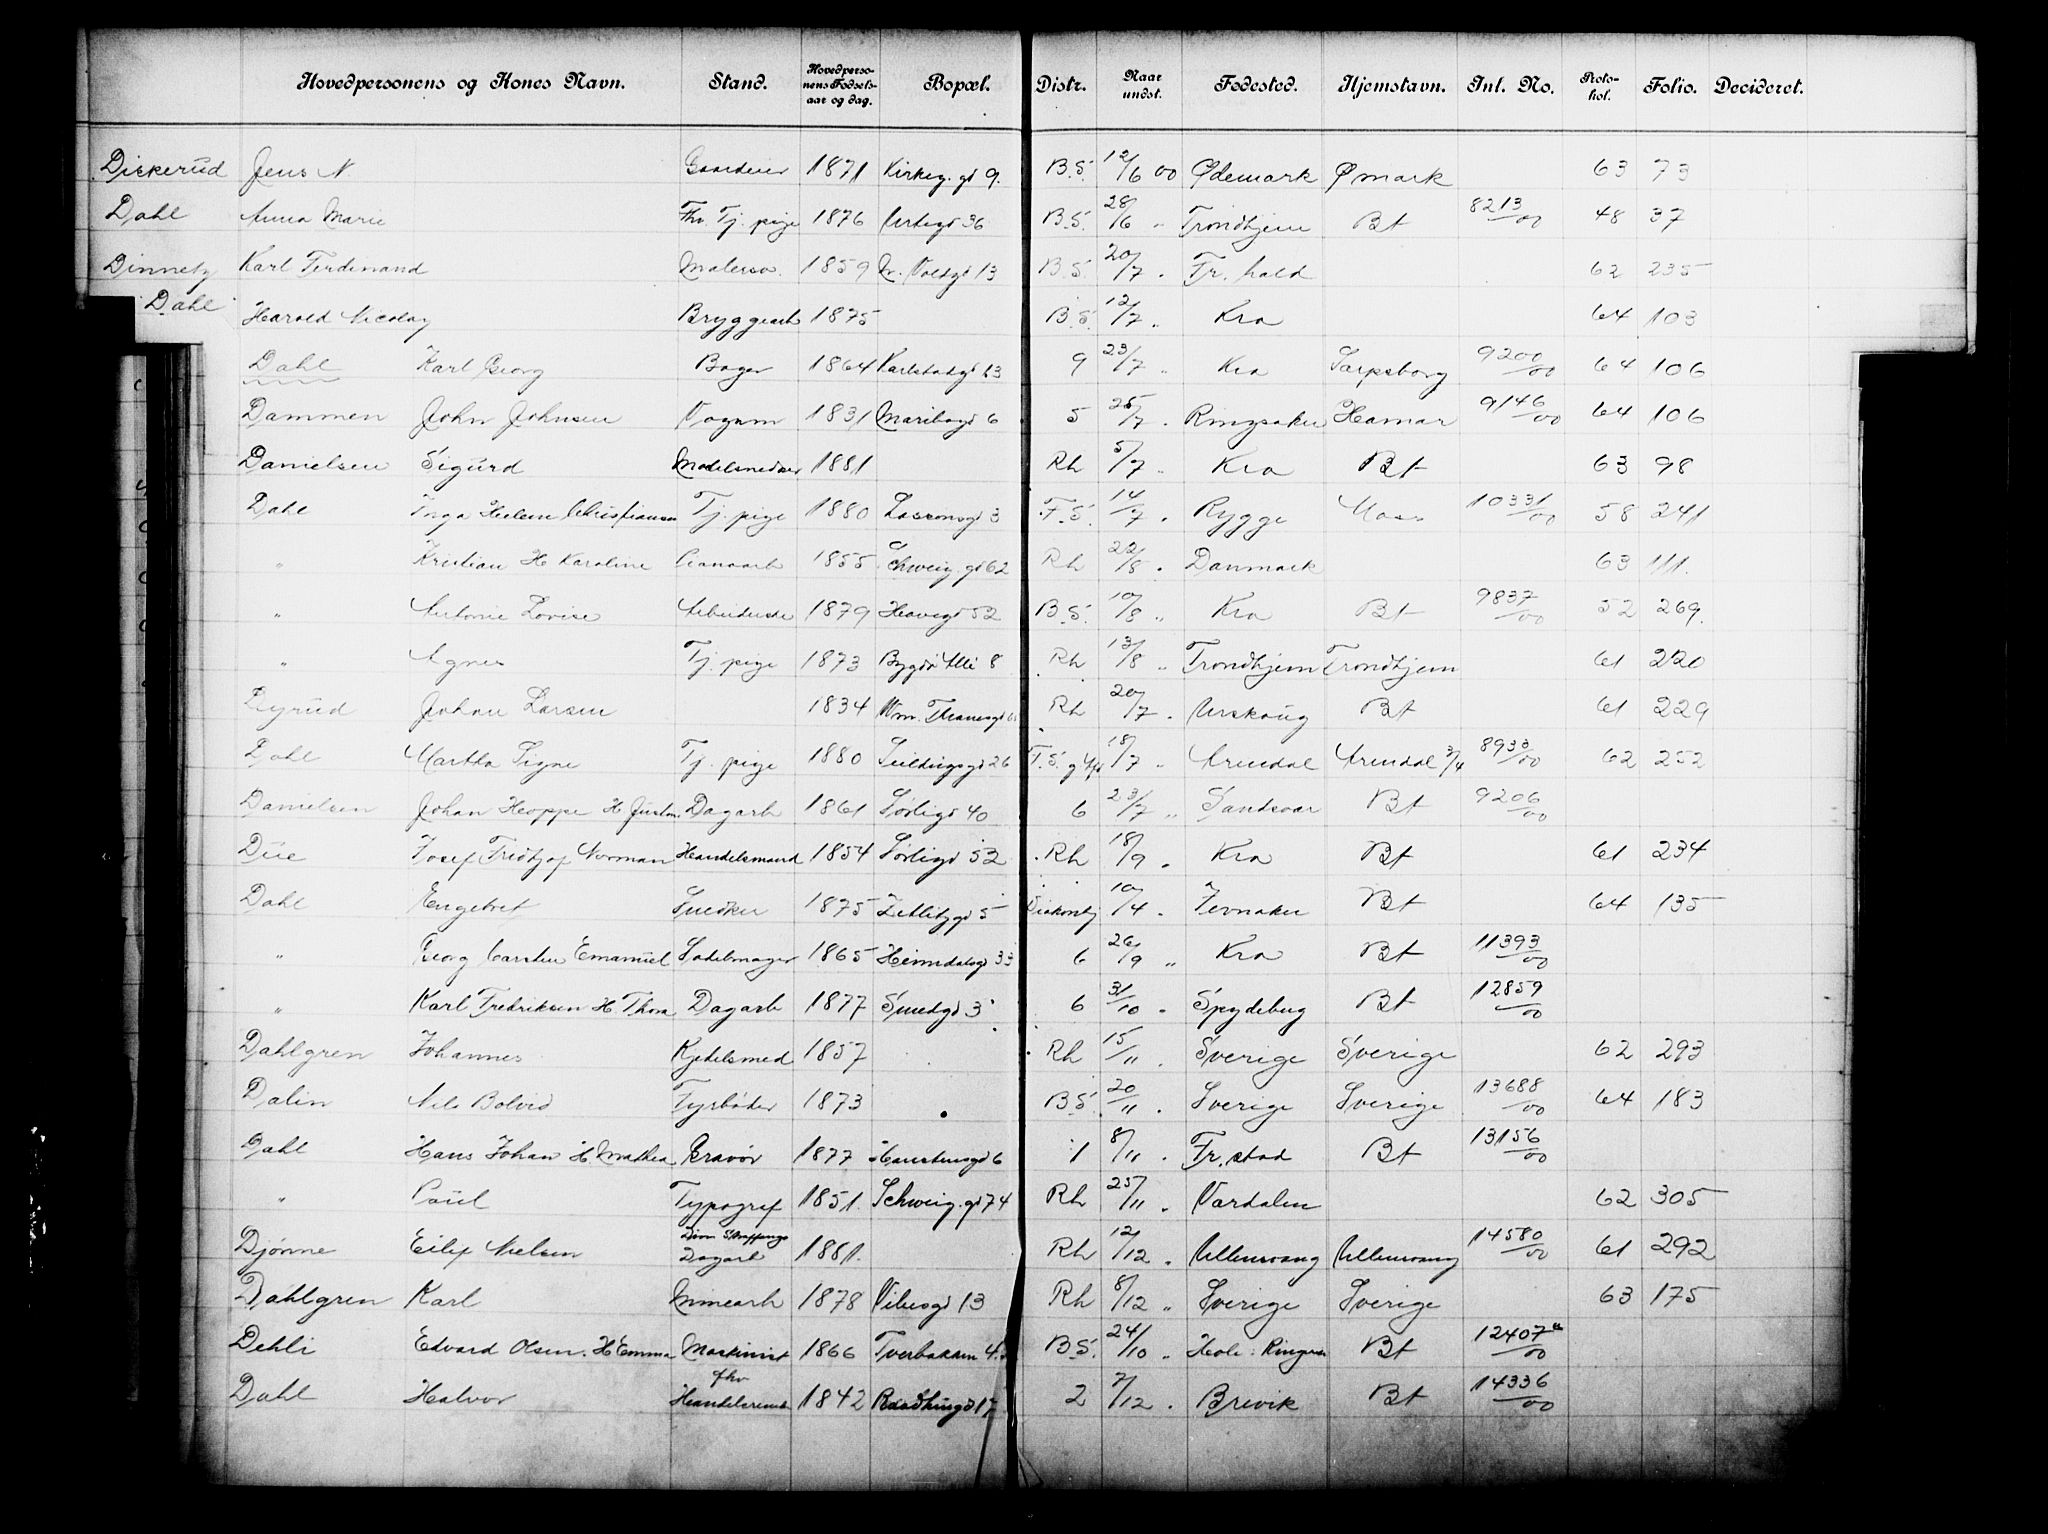 Hovedpersonens og Kones Navn. Stand. Hovedperso-nens Fødsels-aar og dag. Bopæl. Distr. Naar undst. Fødested. Hjemstavn. Inl. No. Proto-kol. Folio. Decideret.
Diskerud Jens N Gaardeier 1871 Kirkeg. gd 9. B.S. 12/6 00 Ødemark Ømark 63 73
Dahl Anna Marie Fhv. Tj. pige 1876 Urtegd 36 B.S. 28/6 " Trondhjem Bt 8213/00 48 37
Dinnetz Karl Ferdinand Malersv. 1859 N. Voldgd 13 B.S. 20/7 " Fr. hald 62 235
Dahl Harald Nicolay Bryggearb 1875 B.S. 12/7 " Kra 64 103
Dahl Karl Georg Bager 1864 Karlstadgd 13 9 23/7 " Kra Sarpsborg 9200/00 64 106
Dammen John Johnsen Vognm 1831 Maribogd 6 5 25/7 " Ringsaker Hamar 9146/00 64 106
Danielsen Sigurd 1881 Rh 5/7 " Kra Bt 63 98
Dahl Inga Helene Christiansen Tj. pige 1880 Lassonsgd 3 F.S. 14/7 " Rygge Moss 10331/00 58 241
" Kristian H Karoline Pianoarb 1855 Schweig. gd 62 Rh 22/8 " Danmark 63 111.
" Antonie Lovise Arbeiderske 1879 52 B.S. 10/8 " Kra Bt 9837/00 52 269.
" Agnes Tj. pige 1873 Bygdø Alle 8 Rh 13/8 " Trondhjem Trondhjem 61 220
Dyrud Johan Larsen 1834 Wm. Thranesgd Rh 20/7 " Urskoug Bt 61 229
Dahl Martha Signe Tj. pige 1880 26 F.S. 18/7 " Arendal Arendal 3/4 8933/00 62 252
Danielsen Johan Hoppe H Dagarb 1861 Sørligd 40 6 23/7 " Sandsvær Bt 9206/00
Due Josef Fridtjof Norman Handelsmand 1854 Sørligd 52 Rh 18/9 " Kra Bt 61 234
Dahl Engebret Snedker 1875 Zetlitzgd 5 Diakonhj 10/4 " Jevnaker Bt 64 135
" Georg Carsten Emanuel Sadelmager 1865 Heimdalsgd 33 6 26/9 " Kra Bt 11393/00
" Karl Fredriksen H. Thora Dagarb 1877 Smedgd 3 6 31/10 " Spydeberg Bt 12859/00
Dahlgren Johannes Kjedelsmed 1857 Rh 15/11 " Sverige Sverige 62 293
Dalin Nils Bolvid Fyrbøder 1873 B.S. 20/11 " Sverige Sverige 13688/00 64 183
Dahl Hans Johan H. Mathea Gravør 1877 Haustensgd 6 1 8/11 " Fr. stad Bt 13156/00
" Paul Typograf 1851. Schweig. gd 74 Rh 25/11 " Værdalen 62 305
Djønne Eilif Nielsen Dagarb 1881. Rh 12/12 " Ullensvang Ullensvang 14580/00 61 292
Dahlgren Karl Minearb 1878 Vibesgd 13 Rh 8/12 " Sverige Sverige 63 175
Dehli Edvard Olsen. H Emma Maskinist 1866 Tverbakken 4. B.S. 24/10 " Hole: Ringer Bt 12407a/00
Dahl Halvor fhv Handelsrend 1842 Raadhusgd 17 2 7/12 " Brevik Bt 14336/00